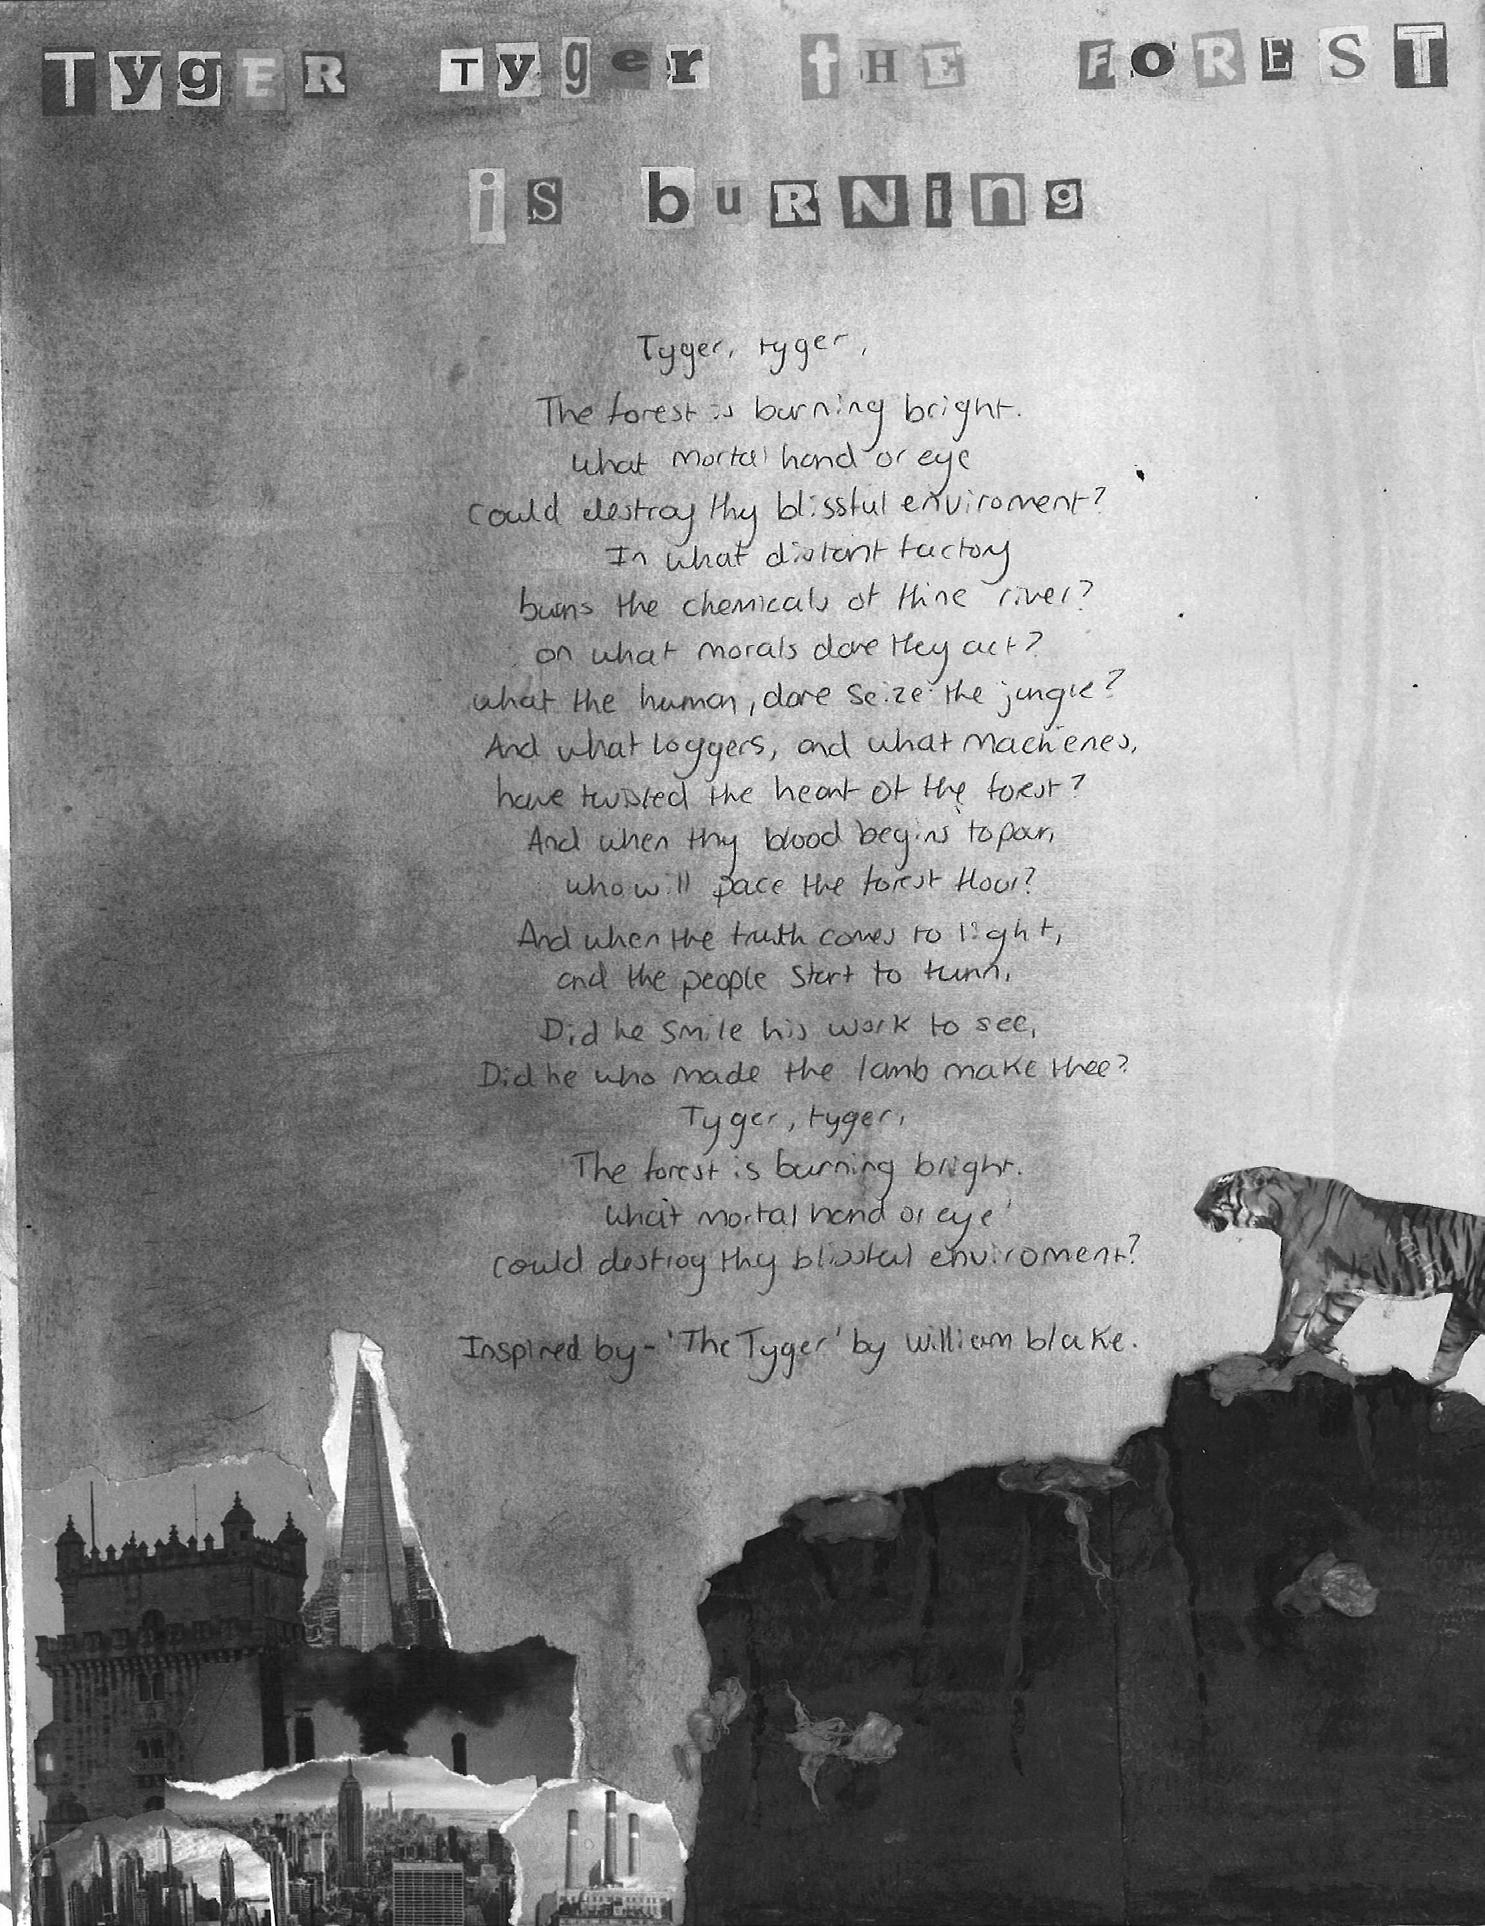 TygER Tyger tHE FOREST
is buRNing
Tyger, tyger,
The forest is burning bright.
what mortal hand or eye
could destroy thy blissful enviroment?
In what distant factory
burns the chemicals of thine river?
on what morals dare they act?
what the human, dare seize the jungle?
And what loggers, and what machienes,
have twisted the heart of the forest?
And when thy blood begins to pour,
who will pace the forest floor?
And when the truth comes to light,
and the people start to turn,
Did he smile his work to see,
Did he who made the lamb make thee?
Tyger, tyger,
The forest is burning bright.
what mortal hand or eye
could destroy thy blissful enviroment?
Inspired by - 'The Tyger' by william blake.